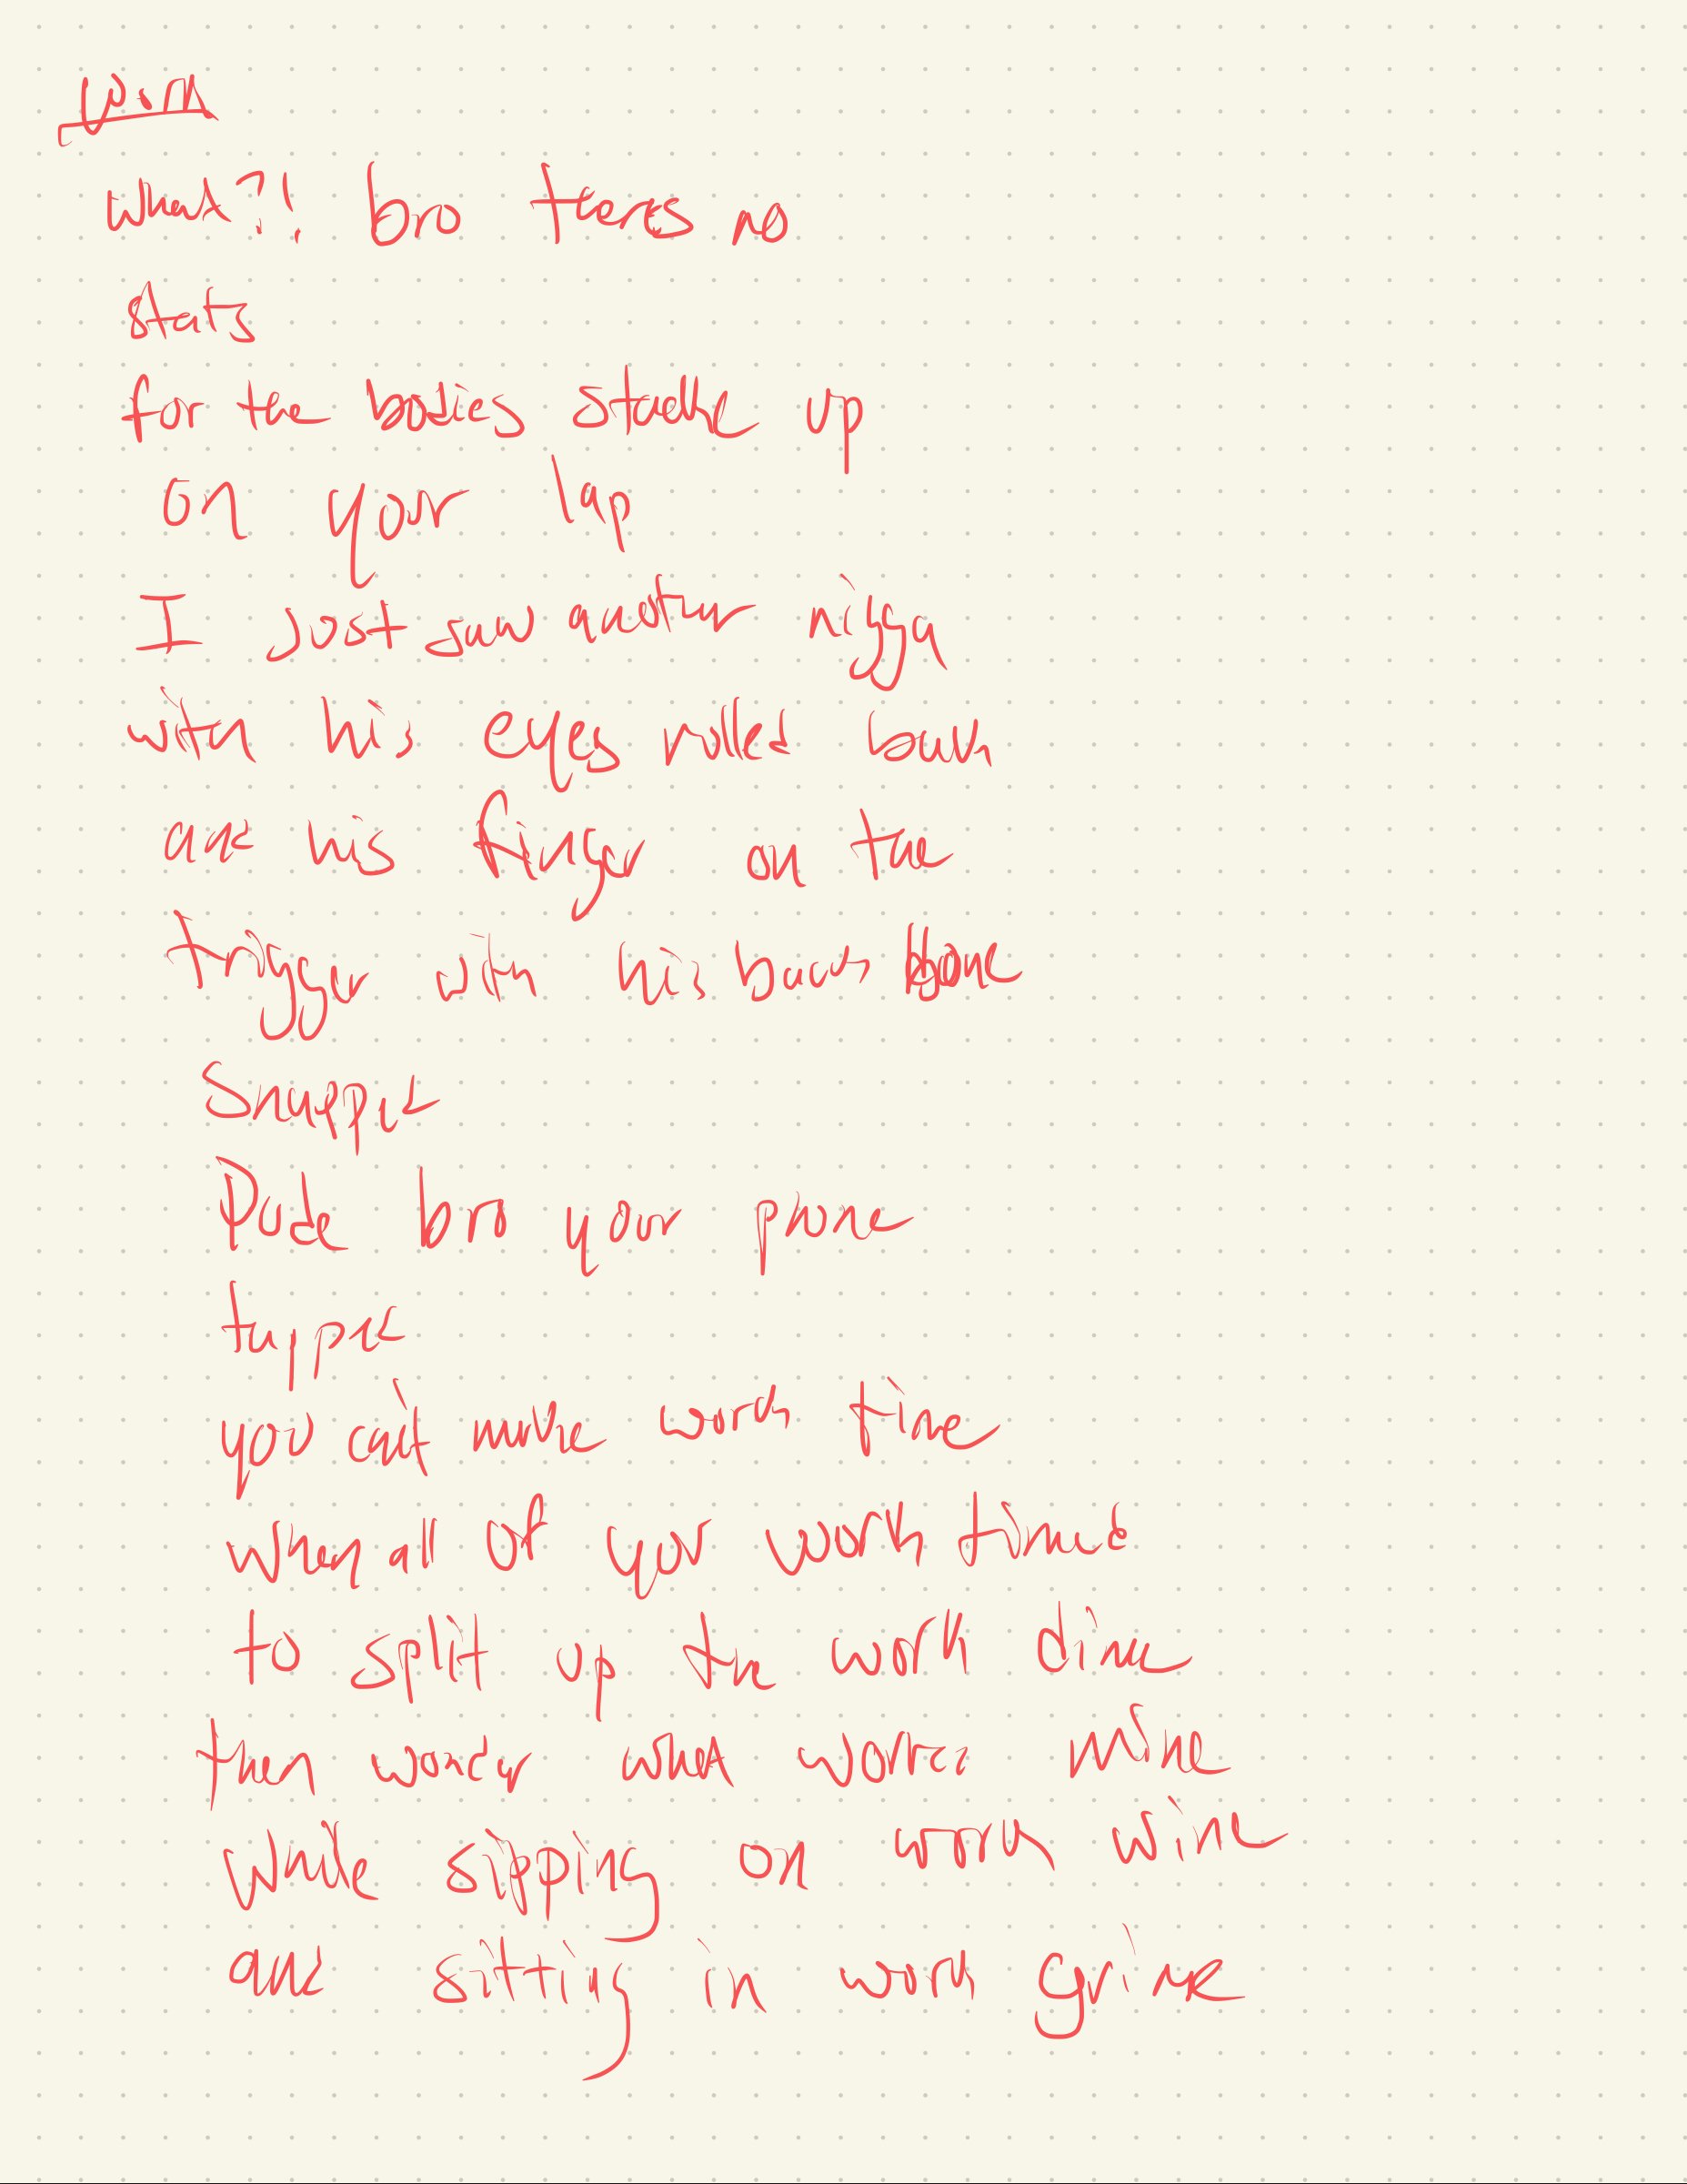 Work
what?! bro theres no
stats
for the bodies stack up
on your lap
I just saw another nigga
with his eyes rolled back
and his finger on the
trigger with his back bone
snapped
Dude bro your phone
tapped
you can't make work time
when all of your work timed
to split up the work dime
then wonder what works mine
while sipping on work wine
and sitting in work grime